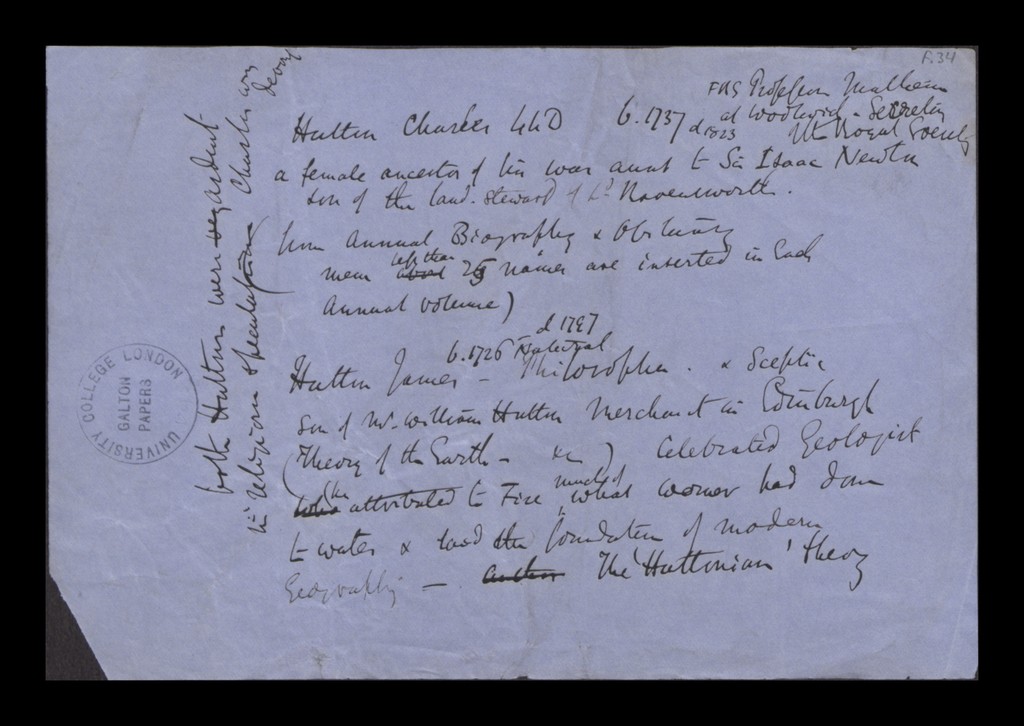 F.34
FRS Professor Mathem
at Woolwich - Secretary
Hutton Charles LLD b. 1737 d 1823 to Royal Society
a female ancestor of his was aunt to Sir Isaac Newton
son of the land. steward of Ld. Ravensworth.
from Annual Biography & Obituary
mem less than about 25 names are inserted in each
Annual volume)
d 1797
b. 1726 Natural
Hutton James - Philosopher. & Sceptic
son of Mr. William Hutton Merchant in Edinburgh
(Theory of the Earth - &c) Celebrated Geologist
who attributed to Fire much of what Werner had done
to water & laid the foundation of modern
Geography - author The 'Huttonian' theory
both Huttons were ardent
in religion speculation Charles was
devout
UNIVERSITY COLLEGE LONDON
GALTON
PAPERS